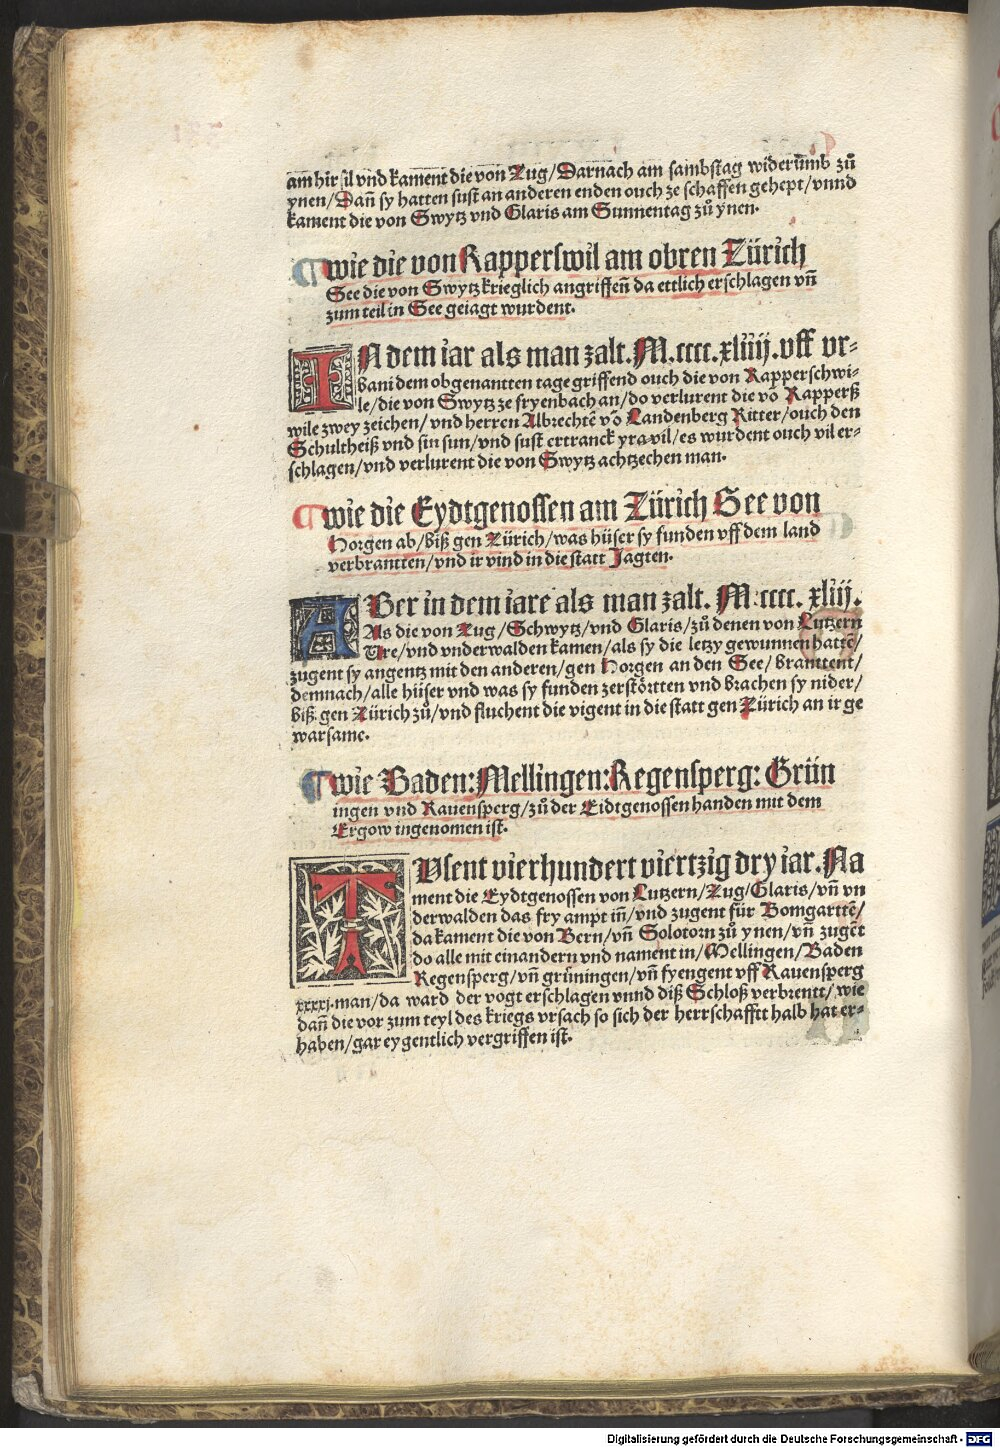 am hirsil vnd kament die von Zug/Darnach am sambstag widerūmb zů
ynen/Dañ sy hatten sust an anderen enden ouch ze schaffen gehept/vnnd
kament die von Swytz vnd Glaris am Sunnentag zů ynen.
¶ wie die von Rapperswil am obren Zürich
See die von Swytz krieglich angriffeñ da ettlich erschlagen vñ
zum teil in See geiagt wurdent.
IN dem iar als man zalt. M.cccc.xliiij.vff vr-
bani dem obgenantten tage griffend ouch die von Rapperschwi-
le/die von Swytz ze fryenbach an/do verlurent die vō Rapperß
wile zwey zeichen/vnd herren Albrechtē vō Landenberg Ritter/ouch den
Schultheiß vnd sin sun/vnd sust ertranck yra vil/es wurdent ouch vil er-
schlagen/vnd verlurent die von Swytz achtzechen man.
¶ wie die Eydtgenossen am Zürich See von
Horgen ab/biß gen Zürich/was hüser sy funden vff dem land
verbrantten/vnd ir vind in die statt Jagten.
ABer in dem iare als man zalt. M.cccc. xliij.
Als die von Zug/Schwytz/vnd Glaris/zů denen von Lutzern
Vre/vnd vnderwalden kamen/als sy die letzy gewunnen hattē/
zugent sy angentz mit den anderen/gen Horgen an den See/branttent/
demnach/alle hüser vnd was sy funden zerstörtten vnd brachen sy nider/
biß gen Zürich zů/vnd fluchent die vigent in die statt gen Zürich an ir ge
warsame.
¶ wie Baden: Mellingen: Regensperg: Grün
ingen vnd Rauensperg/zů der Eidtgenossen handen mit dem
Ergow ingenomen ist.
TVsent vierhundert viertzig dry iar. Na
ment die Eydtgenossen von Lutzern/Zug/Glaris/vñ vn
derwalden das fry ampt iñ/vnd zugent für Bomgarttē/
da kament die von Bern/vñ Solotorn zů ynen/vñ zugēt
do alle mit einandern vnd nament in/Mellingen/Baden
Regensperg/vñ grüningen/vñ fyengent vff Rauensperg
xxxxj.man/da ward der vogt erschlagen vnnd diß Schloß verbrentt/wie
dañ die vor zum teyl des kriegs vrsach so sich der herrschafftt halb hat er-
haben/gar eygentlich vergriffen ist.
Digitalisierung gefördert durch die Deutsche Forschungsgemeinschaft - DFG